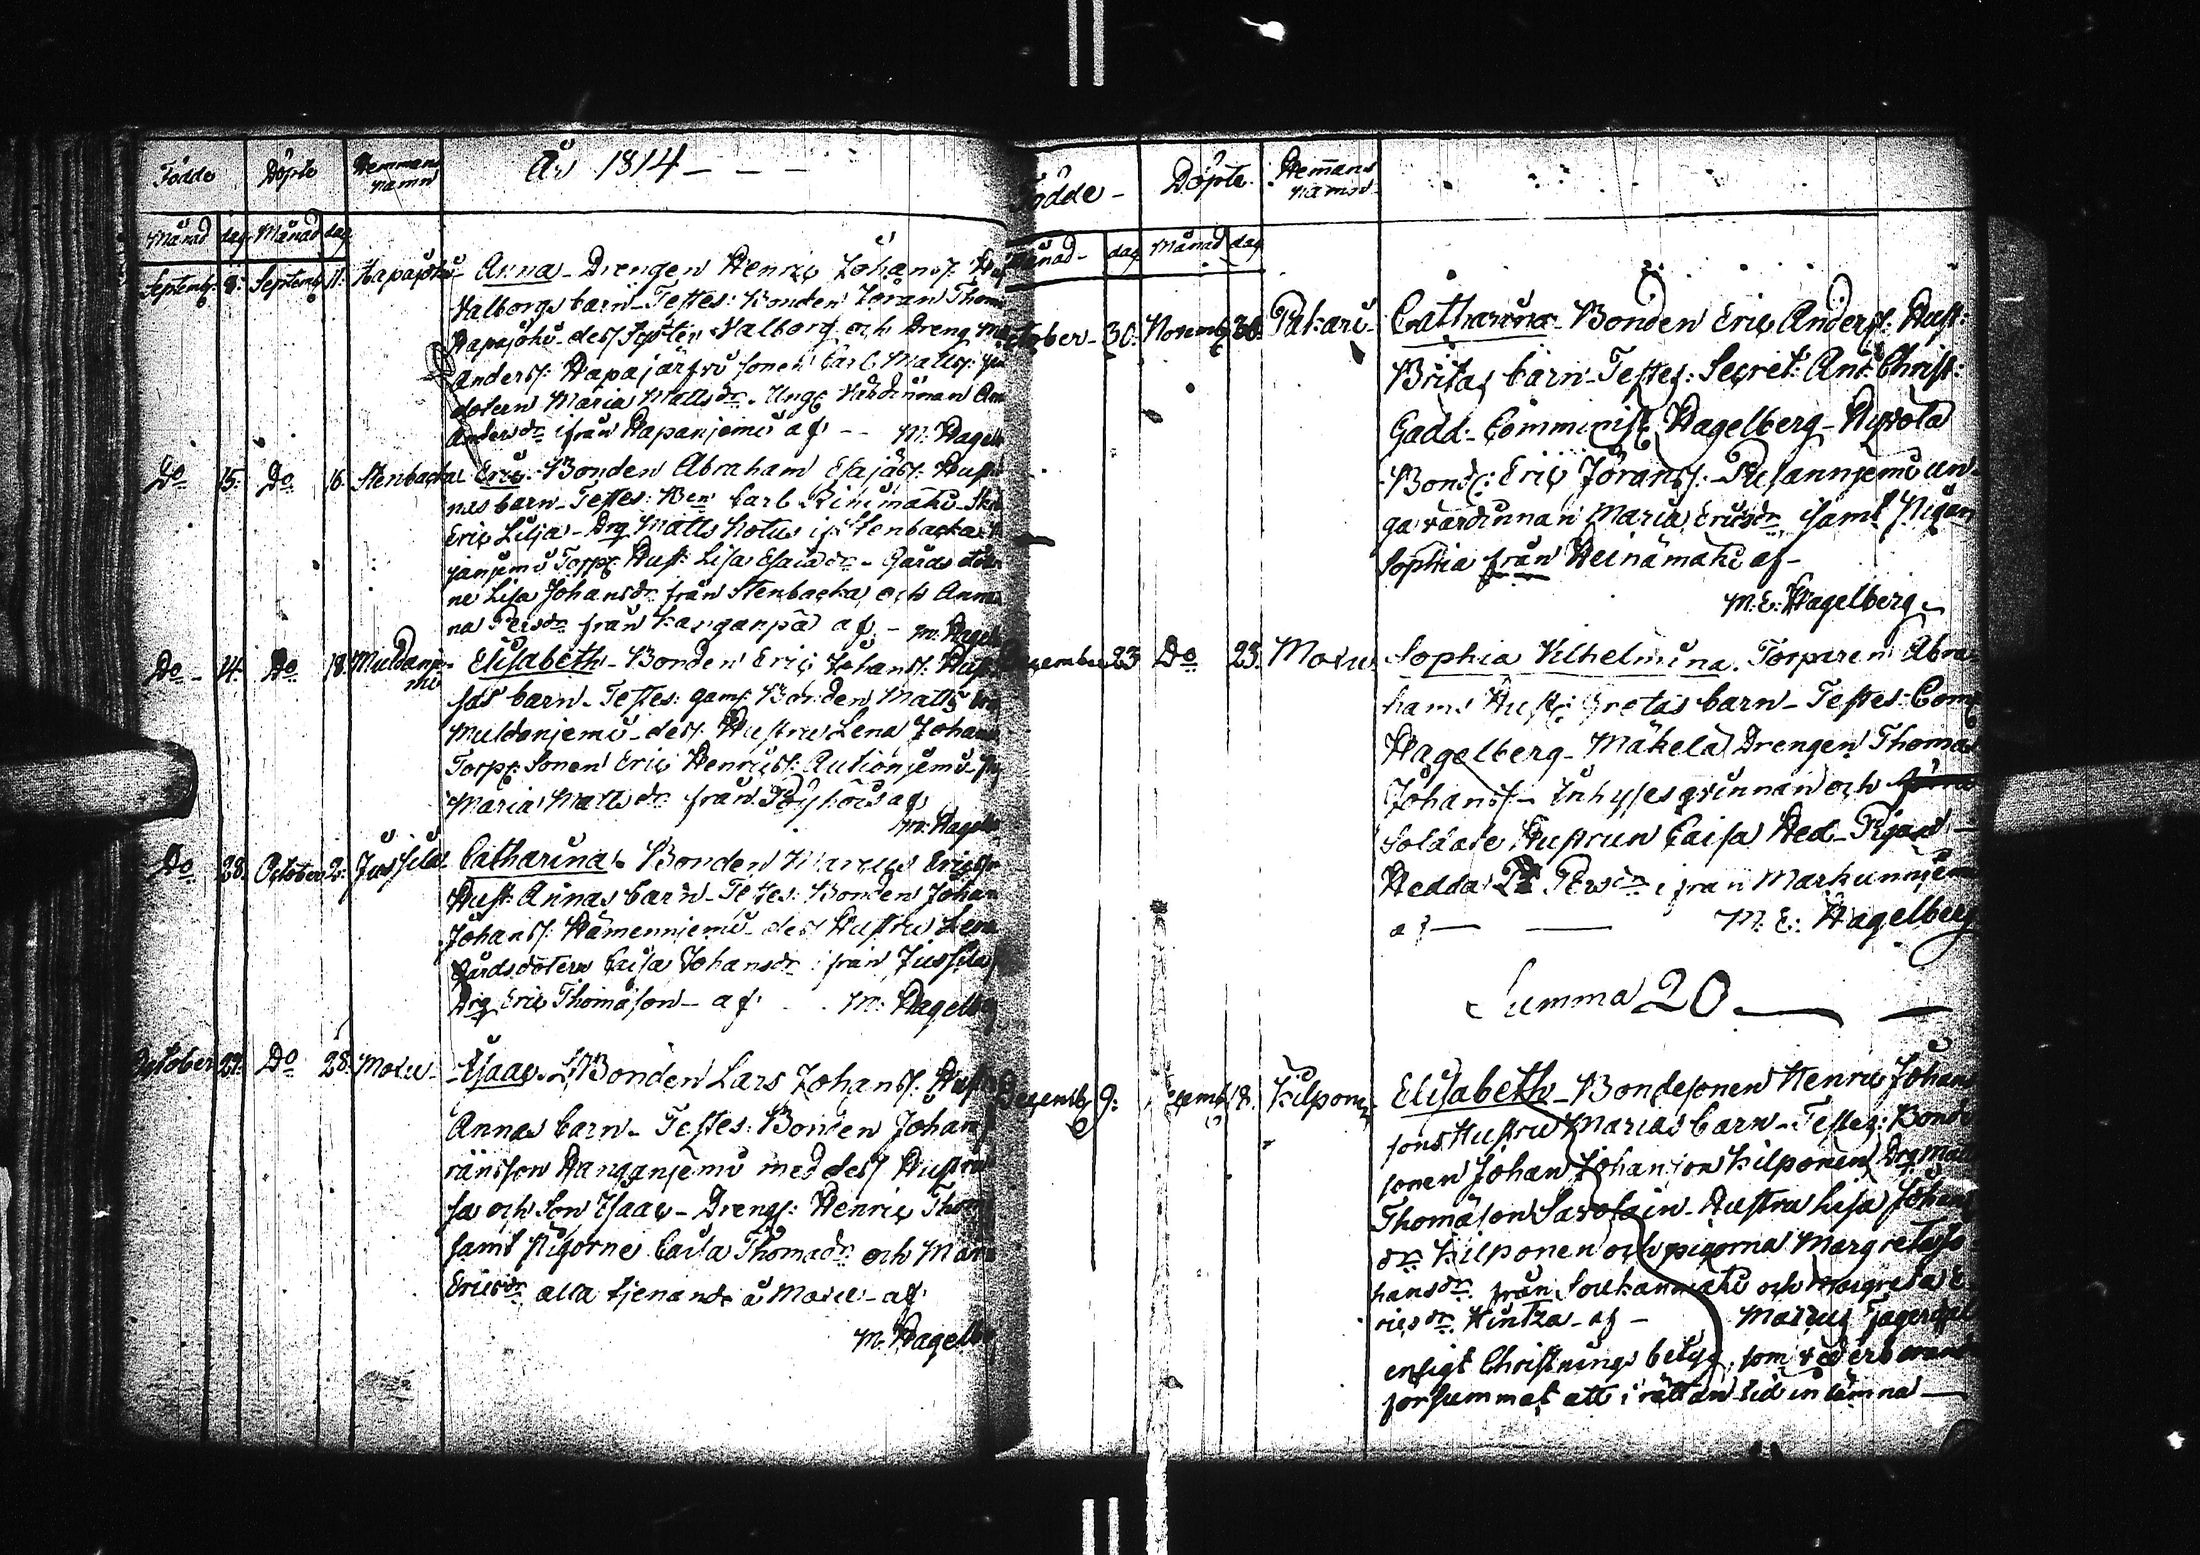 År 1814 - - -
Födde Döpte Hemmans namn
Månad dag Månad dag
Septemb. 8. Septemb. 11. Hapajoki Anna - Drengen Henric Johanss.
Valborgs barn - Testes: Bonden Jöran
Hapajoki - dess Syster Valborg och Dreng
Anderss. Hapajärfvi sonen Carl Matts.
dotern Maria Matts dr. Unge Värdinnan
Anders dr ifrån Hapanjemi af - - M. Hagel
Do 15. Do 16. Stenbacka Eric. Bonden Abraham Esajæss.
nas barn - Testes: Carl Rinimäki
Eric Lilja - Drg Matts ifr. Stenbacka
Torpr. Hust: Lisa Esaiædr - Gårds
ne Lisa Johansdr från Stenbacka och Anna
na Persdr från Kanganpä af - M. Hagel
Do - 14. Do 18. Muldanjemi Elisabeth - Bonden Eric Johanss.
sas barn - Testes: gaml. Bonden Matts
Muldanjemi - dess Hustru Lena Johans
Torpr. Sonen Eric Henricss. Autionjemi
Maria Matts dr från Pöyhöis af
M. Hagel
Do 28. October 2. Jussila Catharina. Bonden Marcus Ericss
Hust: Annas barn - Testes: Bonden Johan
Johanss. Hämennjemi - dess Hustru Lena
Gårdsdotern Caisa Johansdr ifrån Jussila
Drg Eric Thomasson - af M. Hagelb
October 27. Do 28. Moxu - Isaac. Bonden Lars Johanss.
Annas barn - Testes: Bonden Johan
ränsson Hanganjemi med dess Hustru
sa och Son Isaac - Drengs: Henric Thom
samt Pigorne Caisa Thomædr och Mar
Ericsdr alla tjenande å Moxu - af
M. Hagelb
Födde - Döpte Hemans namn
Månad - dag Månad dag
October - 30. Novemb. 30. Pakari - Catharina - Bonden Eric Anderss. Hust:
Britas barn - Testes: Secret: Ant: Christ:
Gadd - Comminist. Hagelberg - Hyvölä
Bond: Eric Jöranss: - un-
ga värdinnan Maria Ericsdr samt Pigan
Sophia från Heinämäki af -
M. E: Hagelberg
Decembr 23 Do 25. Moxu Sophia Vilhelmina. Torparen Abra-
hams Hust: Gretas barn - Testes: Com
Hagelberg - Mäkelä Drengen Thomas
Johanss - Inhyses qvinnan och
Soldate Hustrun Caisa Hed - Pigan -
Hedda Persdr ifrån Markunnjem
af - - M. E: Hagelberg
Summa 20 - -
Decemb. 9: Decemb. 18. Kilponen Elisabeth - Bondesonen Henric Johan
sons Hustru Marias barn - Testes: Bonde
sonen Johan Johansson Kilponen Drg Mat
Thomasson Savolain - Hustru Lisa Johans
dr Kilponen och pigorna Margreta Jo
hansdr från Soukanmäki och Margreta E
ricsdr Hintza - af - Marcus Fagerqvi
enligt Christnings betyg, som
forsummat att i rättan tid inlämna -